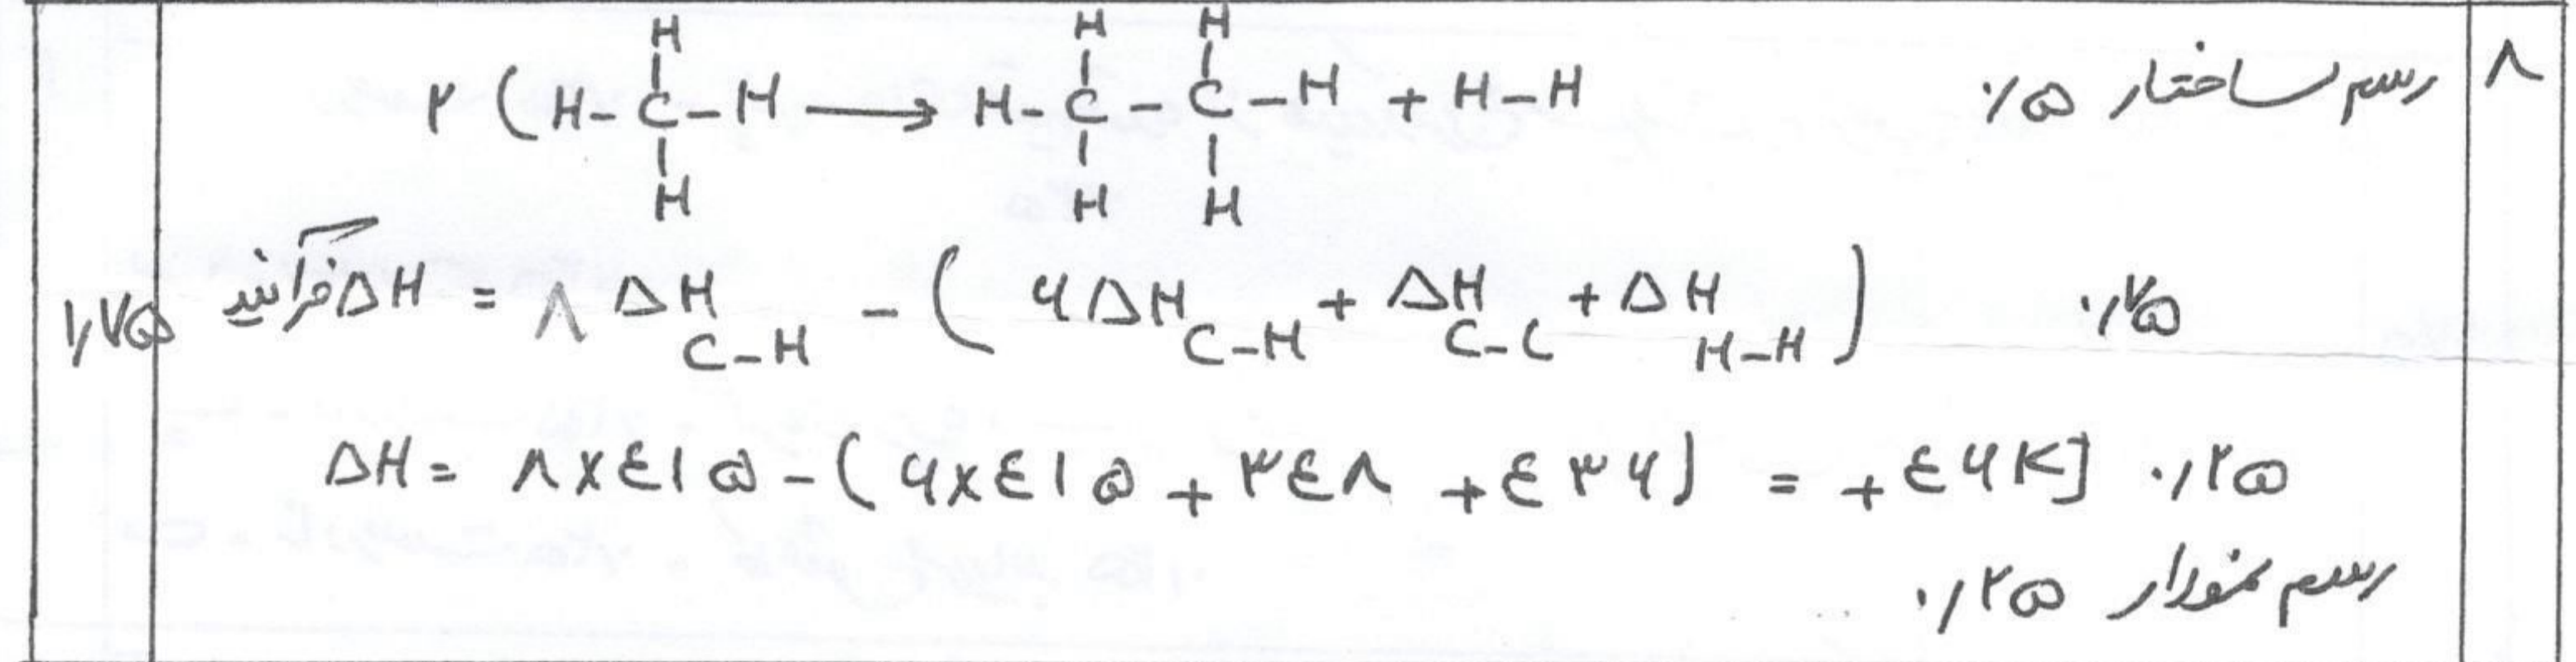 ۸ رسم ساختار ۰/۵
H H H
۲ (H-C-H → H-C-C-H + H-H
H H H
۱/۷۵ ΔH فرآیند = ۸ΔH C-H - (۶ΔH C-H + ΔH C-C + ΔH H-H) ۰/۷۵
ΔH = ۸×۴۱۵-(۶×۴۱۵+۳۴۸+۴۳۶) = +۴۶KJ ۰/۲۵
رسم نمودار ۰/۲۵